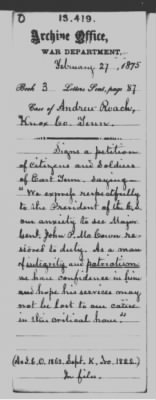 D 13.419.
Archive Office,
WAR DEPARTMENT,
February 27, 1875
Book 3 Letters Sent, page 87
Case of Andrew Roach,
Knox Co. Tenn.
Signs a petition
of citizens and soldiers
of East Tenn. saying—
"We express respectfully
to the President of the C.S.
our anxiety to see Major
Genl. John P. McCown res-
tored to duty. As a man
of integrity and patriotism
we have confidence in him
and hope his services may
not be lost to our cause
in this critical hour."
(A & I. G. O. 1863. Sept. K, No. 1822.)
In file.